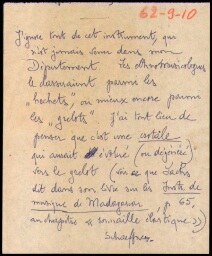 62-9-10
J'ignore tout de cet instrument, qui
n'est jamais venu dans mon
Département. Les ethnomusicologues
le classaient parmi les
"hochets", ou mieux encore parmi
les "grelots". J'ai tout lieu de
penser que c'est une
qui aurait évolué (ou dégénéré)
vers le grelot (voir ce que Sachs
dit dans son livre sur les Instr. de
musique de Madagascar, p. 65,
au chapitre "
Schaeffner